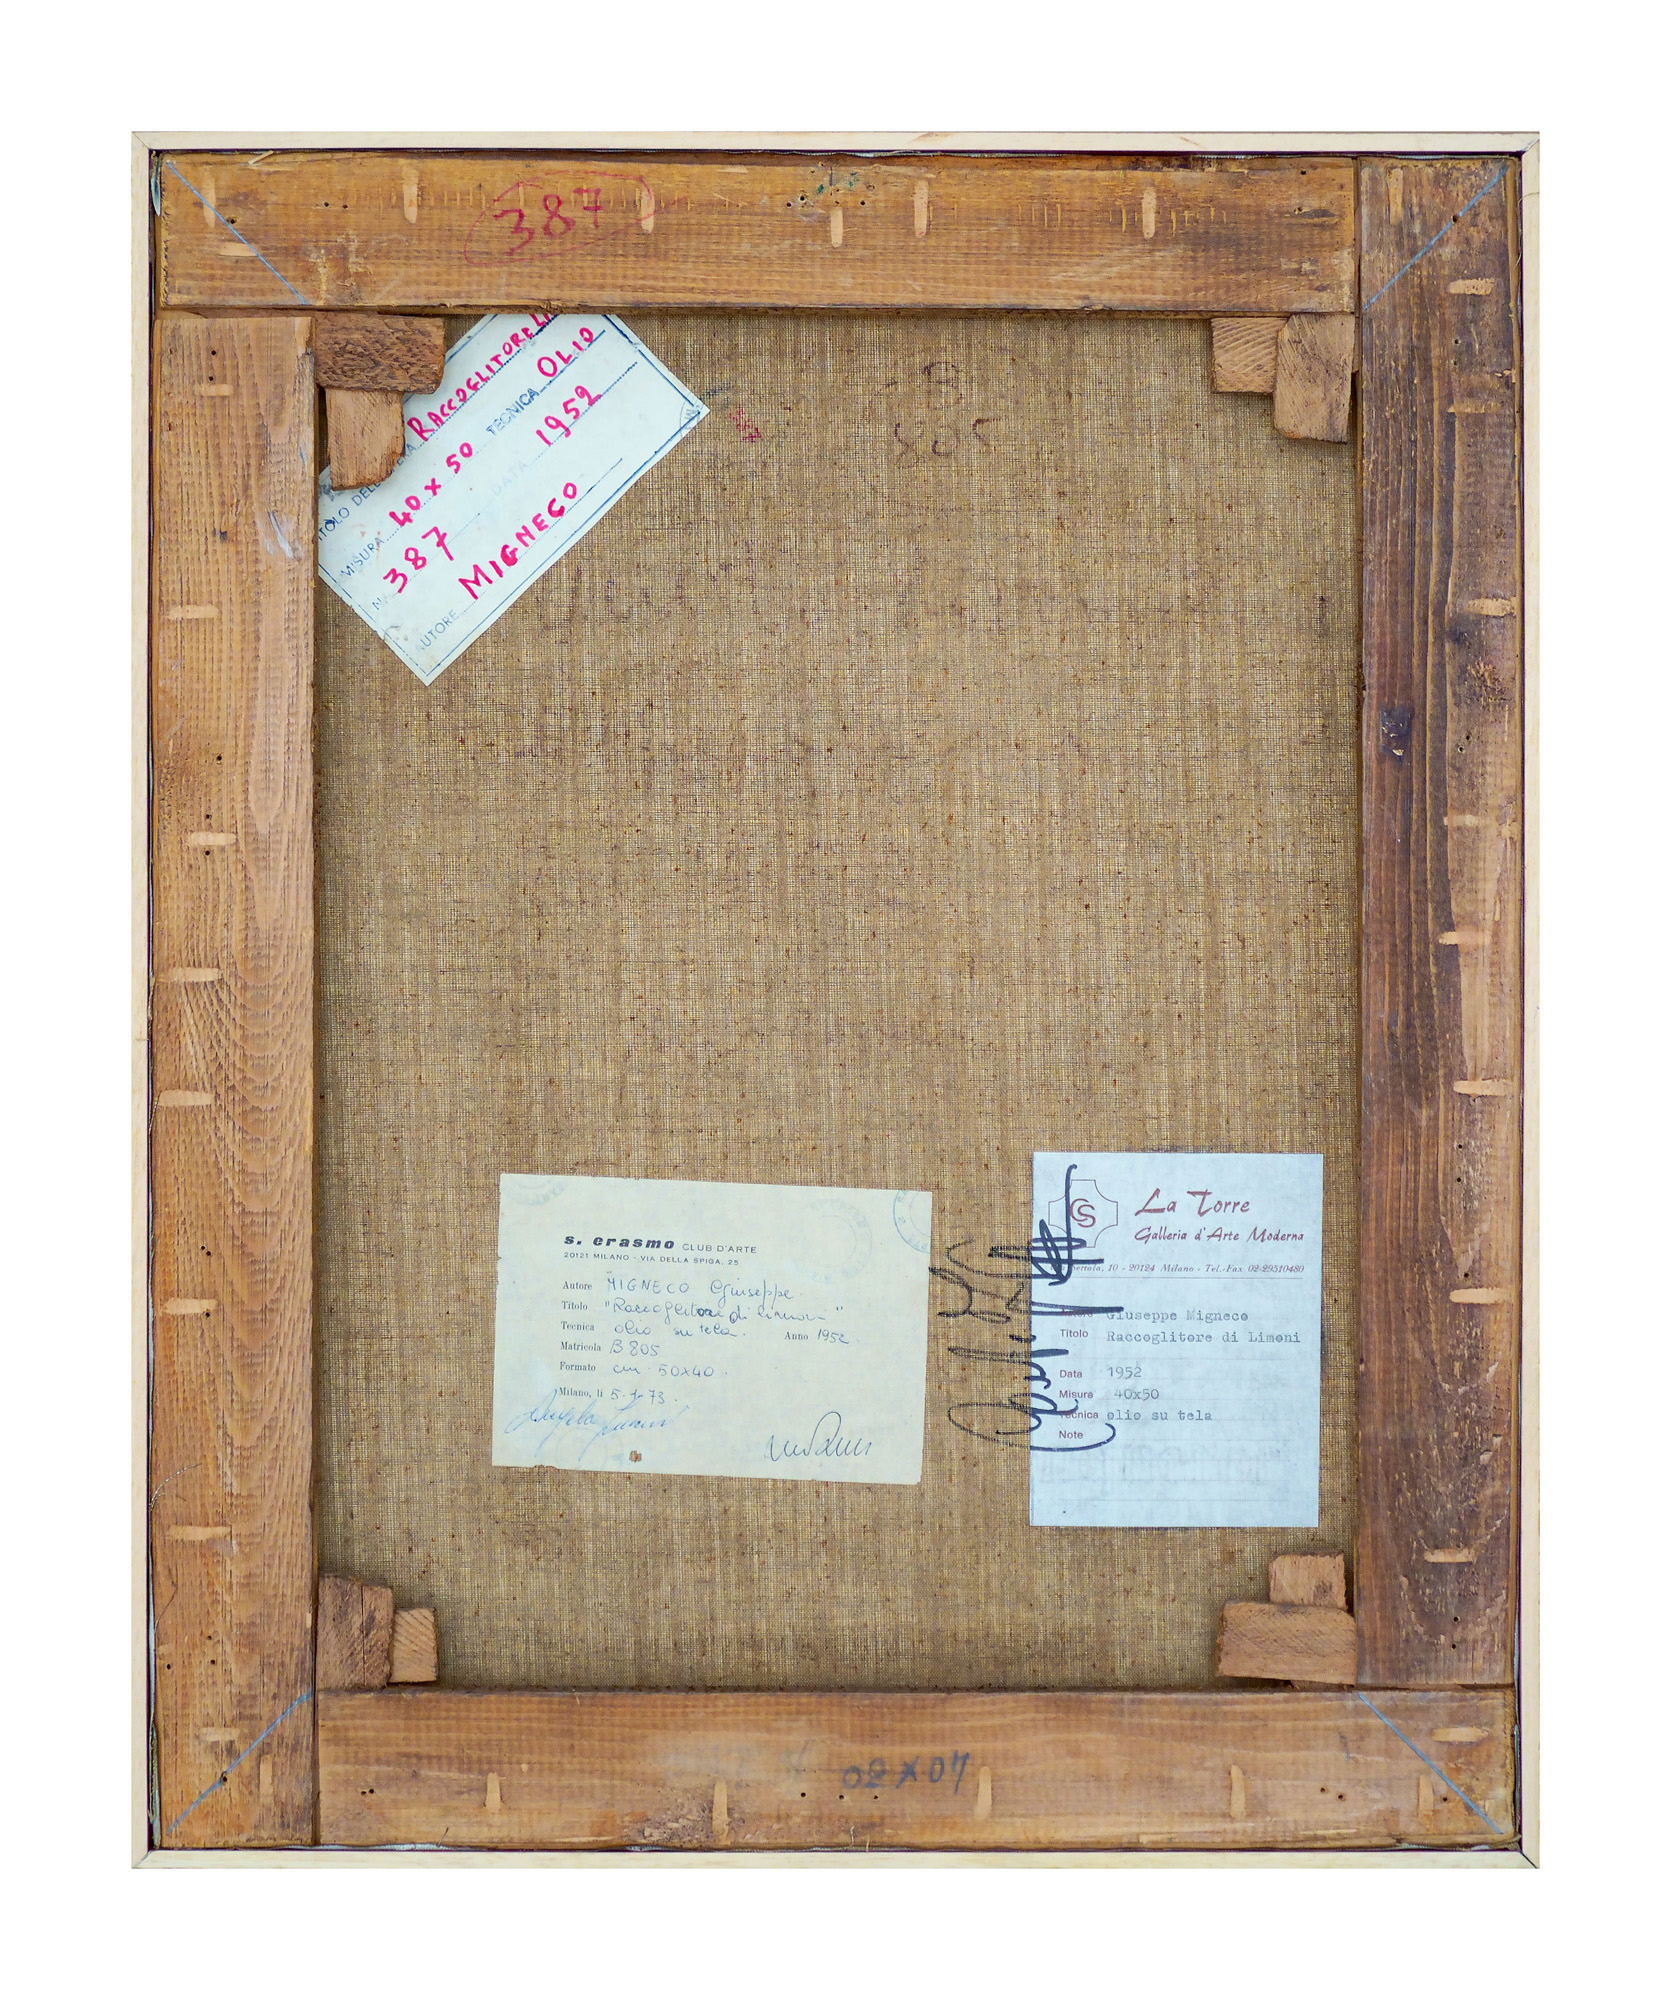 387
RACCOGLITORE LI
MISURA 40 x 50 TECNICA OLIO
N. 387 DATA 1952
AUTORE MIGNECO
B
805
s. erasmo CLUB D'ARTE
20121 MILANO - VIA DELLA SPIGA, 25
Autore MIGNECO Giuseppe
Titolo "Raccoglitore di limoni"
Tecnica olio su tela. Anno 1952
Matricola B 805
Formato cm. 50x40.
Milano, li 5.1.73.
CS
La Torre
Galleria d'Arte Moderna
10 - 20124 Milano - Tel.-Fax 02-29510480
Giuseppe Migneco
Titolo Raccoglitore di Limoni
Data 1952
Misura 40x50
Tecnica olio su tela
Note
40 x 50